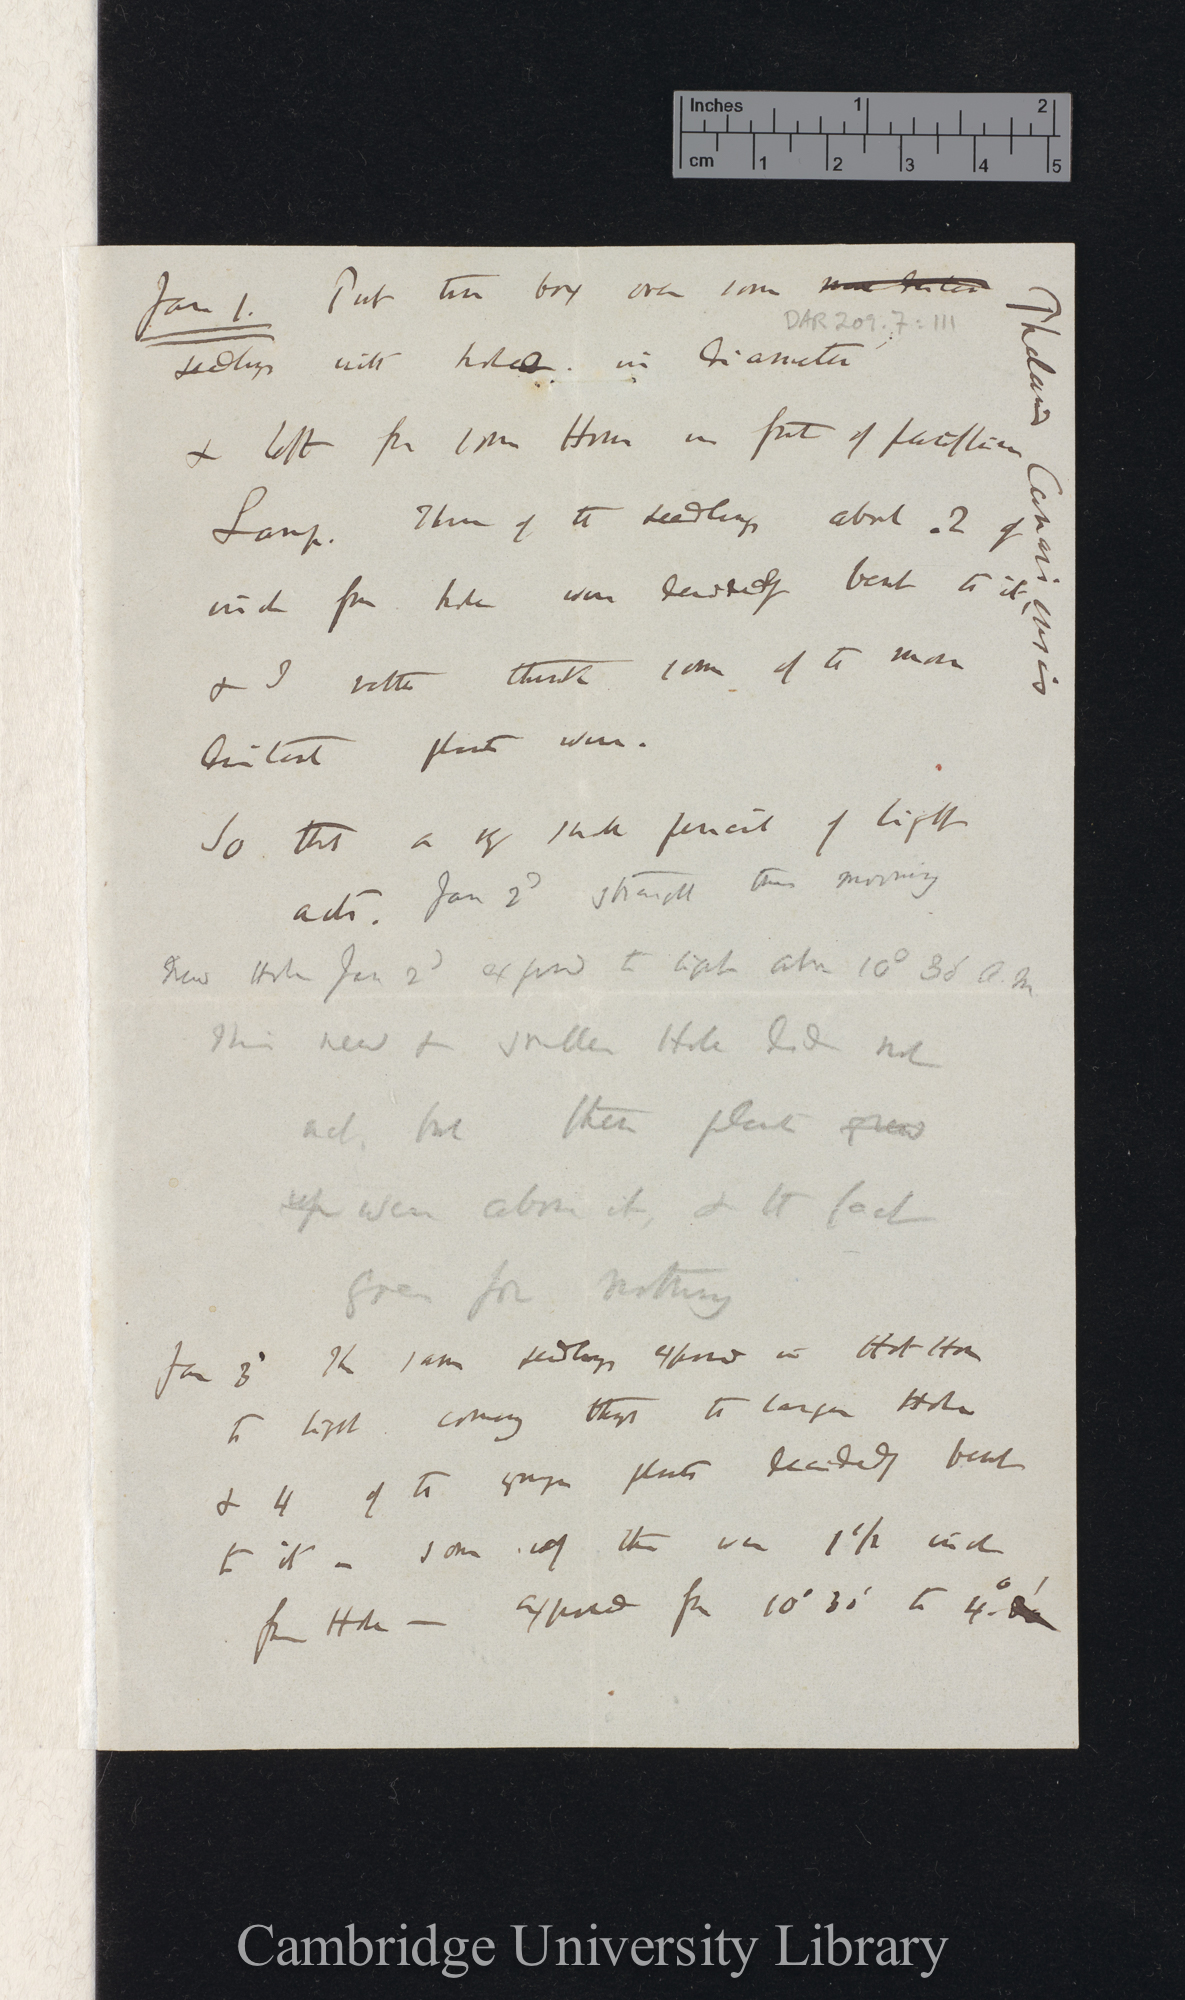 Inches 1 2
cm 1 2 3 4 5
Jan 1. Put tin box over some
DAR 209.7:111
seedlings with hole in diameter
& left for some Hours in front of paraffin
Lamp. Three of the seedlings about .2 of
inch from hole were decidedly bent to it,
& I rather think some of the more
distant plants were.
So that a very small pencil of light
acts. Jan 2d straight this morning
New Hole Jan 2d exposed to light about 10° 30' a.m
This new & smaller Hole did not
act, but these plants grew
up were above it, & the fact
goes for nothing
Jan 3d The same seedlings exposed in Hot House
to light coming through the larger Hole
& 4 of the younger plants decidedly bent
to it – some of them were 1 1/2 inch
from Hole — exposed from 10° 30' to 4°
Phalaris Canariensis
Cambridge University Library